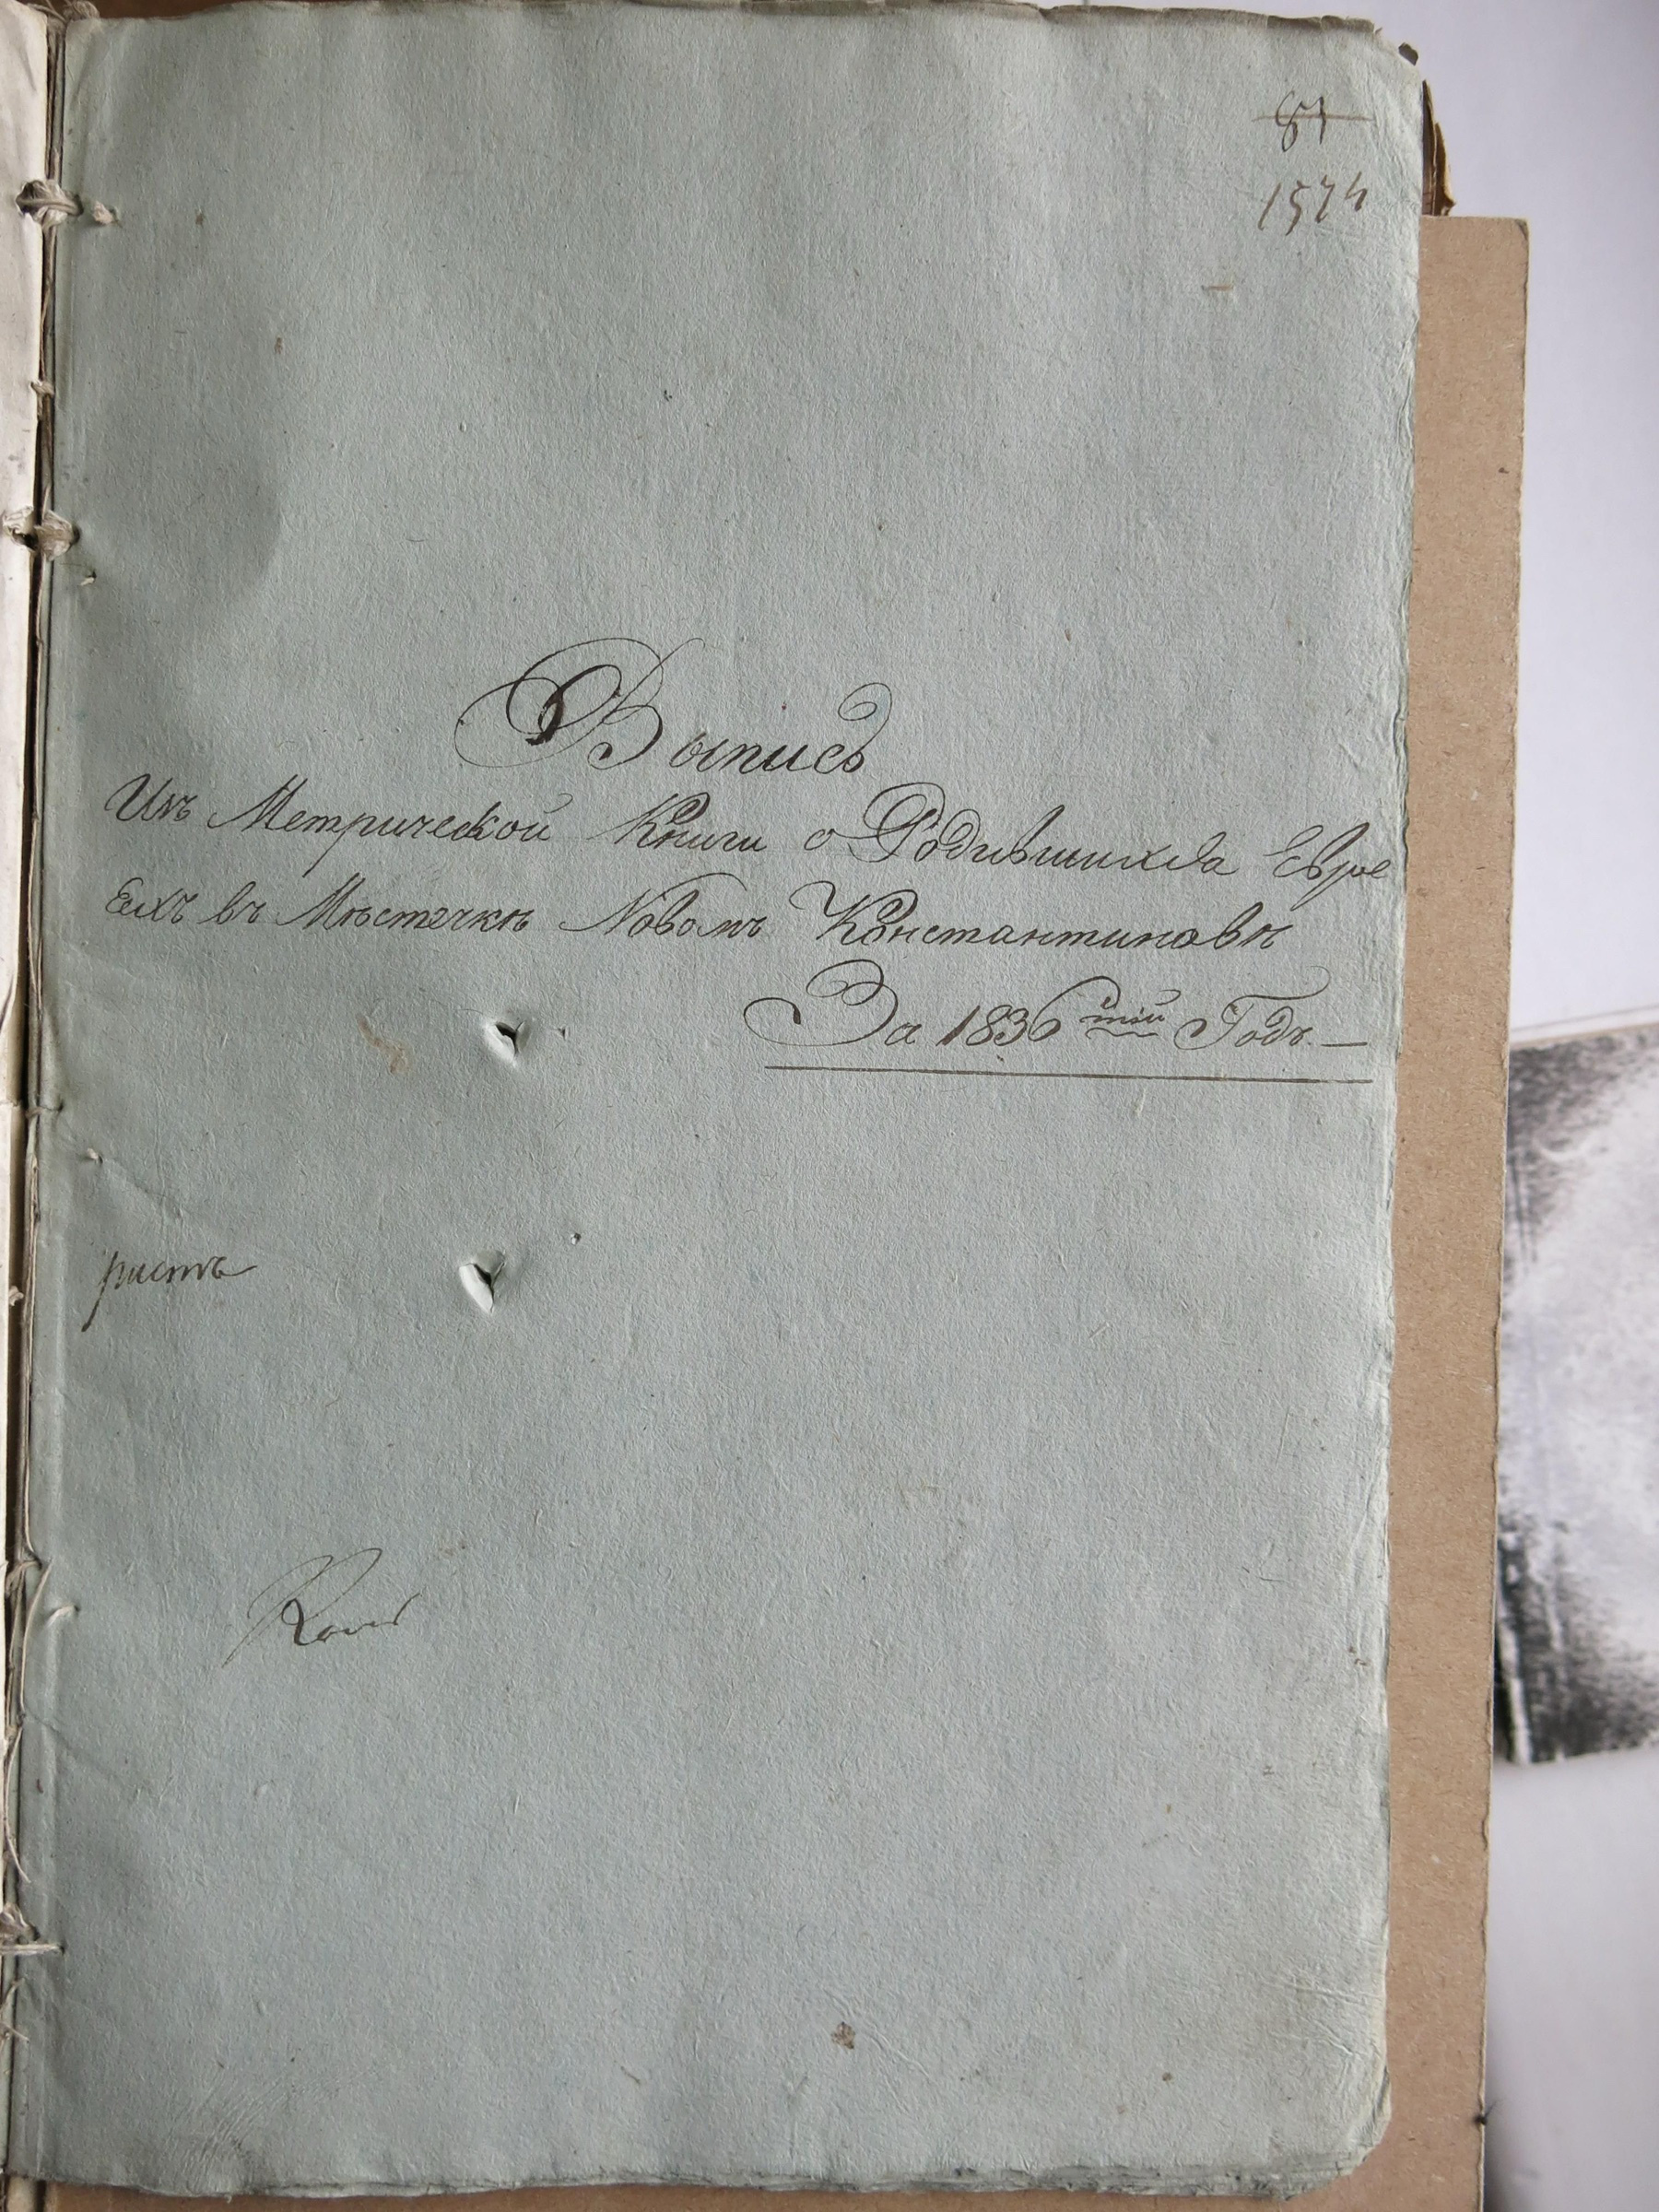 81
1574
Выпись
Изъ Метрической Книги о Родившихся Евре
Еяхъ въ Мѣстечкѣ Новомъ Константиновѣ
За 1836 тый Годъ. —